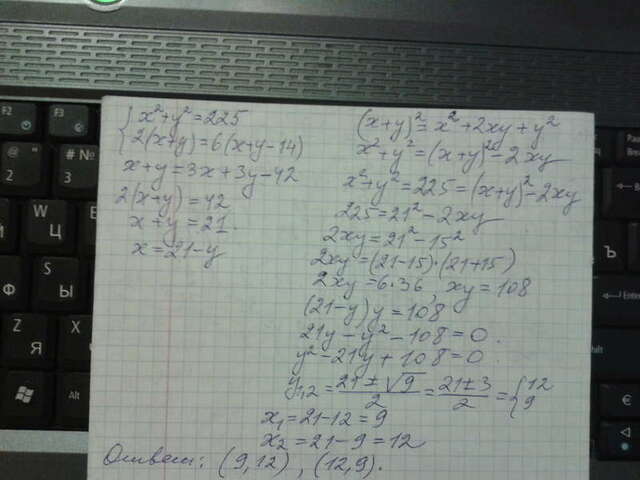 x²+y²=225
2(x+y)=6(x+y-14)
x+y=3x+3y-42
2(x+y)=42
x+y=21.
x=21-y
(x+y)²=x²+2xy+y²
x²+y²=(x+y)²-2xy
x²+y²=225=(x+y)²-2xy
225=21²-2xy
2xy=21²-15²
2xy=(21-15)·(21+15)
2xy=6·36, xy=108
(21-y)y=108
21y-y²-108=0.
y²-21y+108=0
y₁,₂=(21±√9)/2=(21±3)/2={12
9
x₁=21-12=9
x₂=21-9=12
Ответ: (9,12), (12,9).
F2
F3
@
2
"
№
# 3
S
Ы
Z
Я
X
Alt
Ъ
Enter